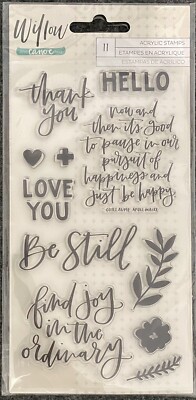 Willow
Lane
11
ACRYLIC STAMPS
ÉTAMPES EN ACRYLIQUE
ESTAMPAS DE ACRÍLICO
thank
you
HELLO
now and
then it's good
to pause in our
pursuit of
happiness and
just be happy.
LOVE
YOU
Be Still
find joy
in the
ordinary